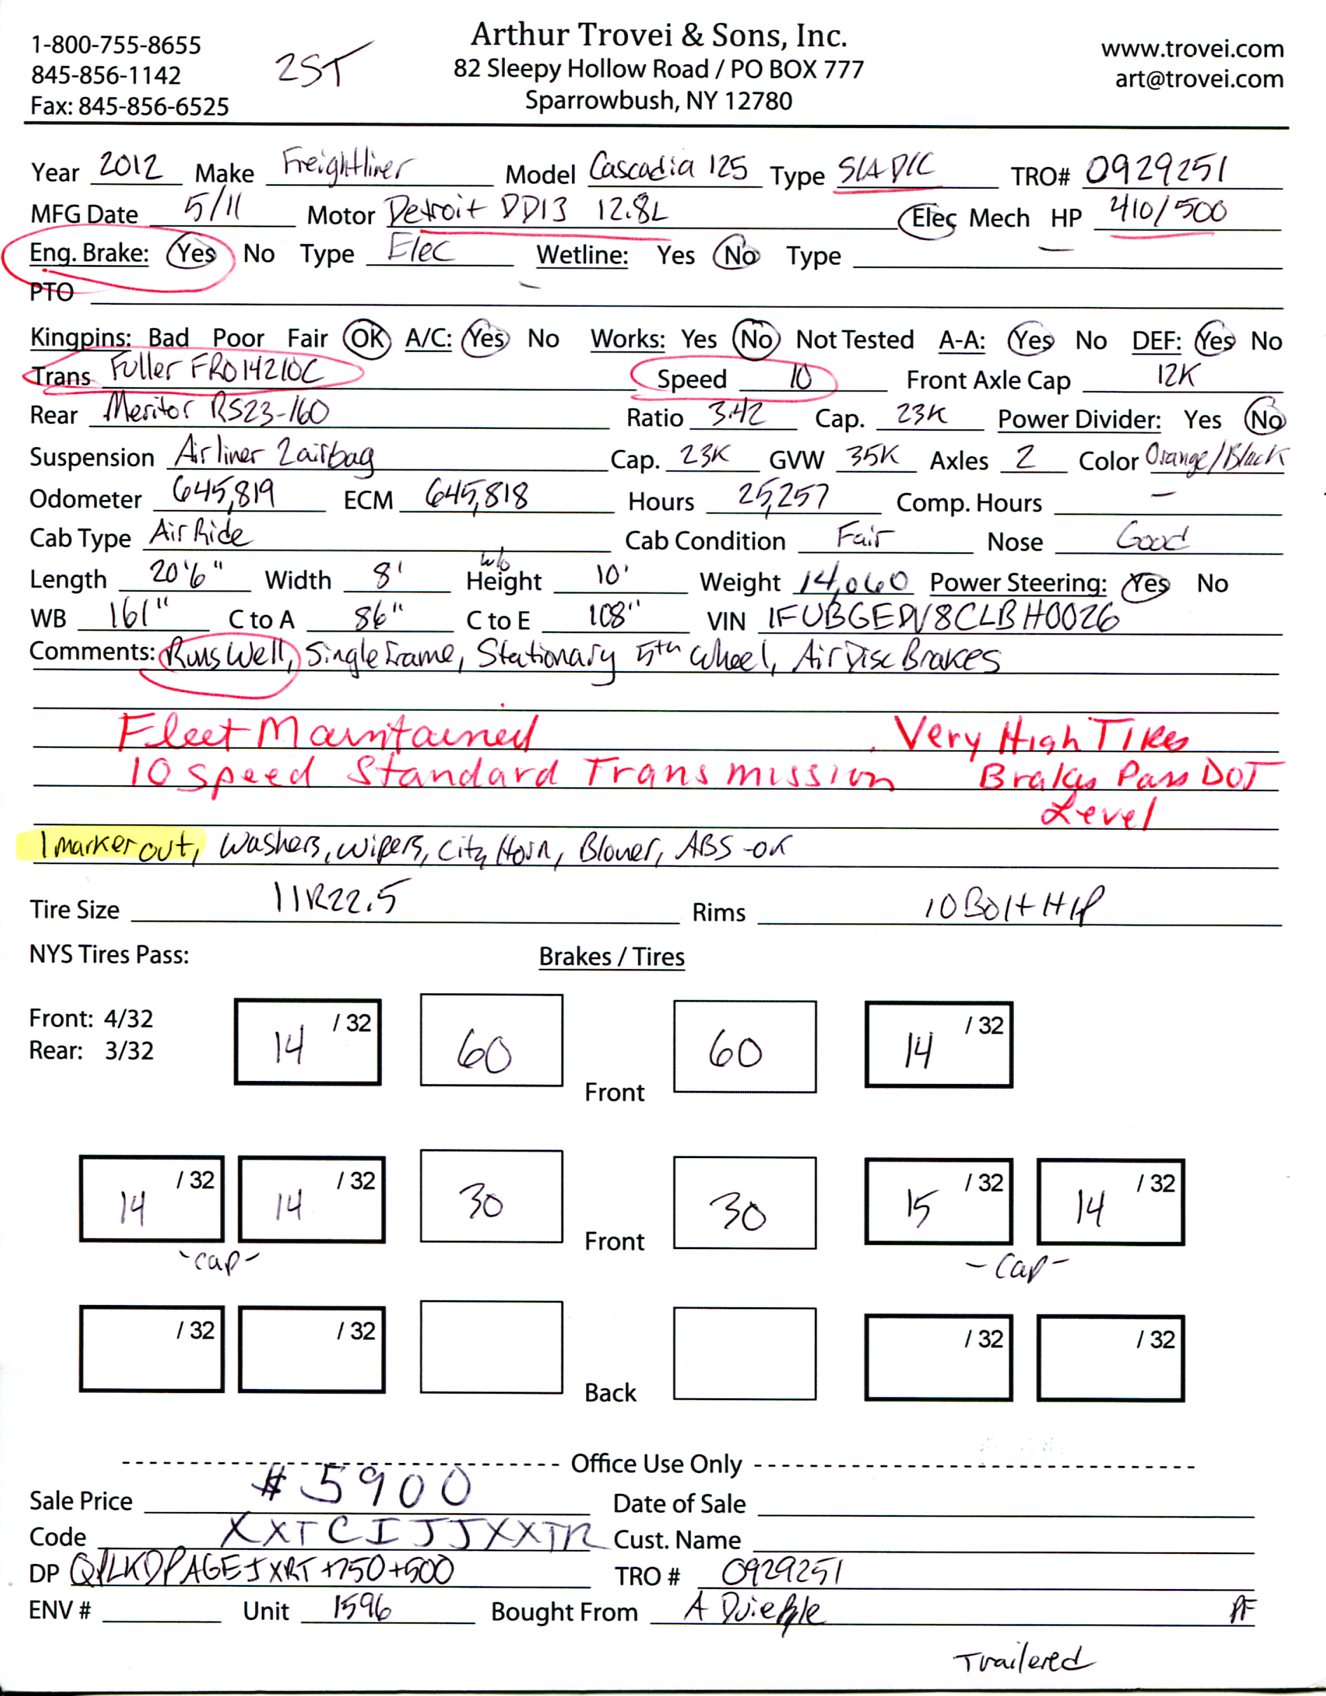 1-800-755-8655
845-856-1142
Fax: 845-856-6525
2ST
Arthur Trovei & Sons, Inc.
82 Sleepy Hollow Road / PO BOX 777
Sparrowbush, NY 12780
www.trovei.com
art@trovei.com
Year 2012 Make Freightliner Model Cascadia 125 Type S/A D/C TRO# 0929251
MFG Date 5/11 Motor Detroit DD13 12.8L Elec Mech HP 410/500
Eng. Brake: Yes No Type Elec Wetline: Yes No Type
PTO
Kingpins: Bad Poor Fair OK A/C: Yes No Works: Yes No Not Tested A-A: Yes No DEF: Yes No
Trans Fuller FRO14210C Speed 10 Front Axle Cap 12K
Rear Meritor RS23-160 Ratio 3.42 Cap. 23K Power Divider: Yes No
Suspension Airliner 2airbag Cap. 23K GVW 35K Axles 2 Color Orange/Black
Odometer 645,819 ECM 645,818 Hours 25,257 Comp. Hours —
Cab Type Air Ride Cab Condition Fair Nose Good
Length 20'6" Width 8' w/o Height 10' Weight 14,060 Power Steering: Yes No
WB 161" C to A 86" C to E 108" VIN 1FUBGEDV8CLBH0026
Comments: Runs Well, Single Frame, Stationary 5th Wheel, Air Disc Brakes
Fleet Maintained Very High Tires
10 Speed Standard Transmission Brakes Pass DOT
Level
1 marker out, Washers, Wipers, City Horn, Blower, ABS -OK
Tire Size 11R22.5 Rims 10 Bolt HP
NYS Tires Pass: Brakes / Tires
Front: 4/32
Rear: 3/32
14 /32 60 Front 60 14 /32
14 /32 14 /32 30 Front 30 15 /32 14 /32
-cap- -cap-
/32 /32 Back /32 /32
Office Use Only
Sale Price $5900 Date of Sale
Code XXTCIJJXXTR Cust. Name
DP QPLKDPAGEJXRT+750+500 TRO # 0929251
ENV # Unit 1596 Bought From A PF
Trailered